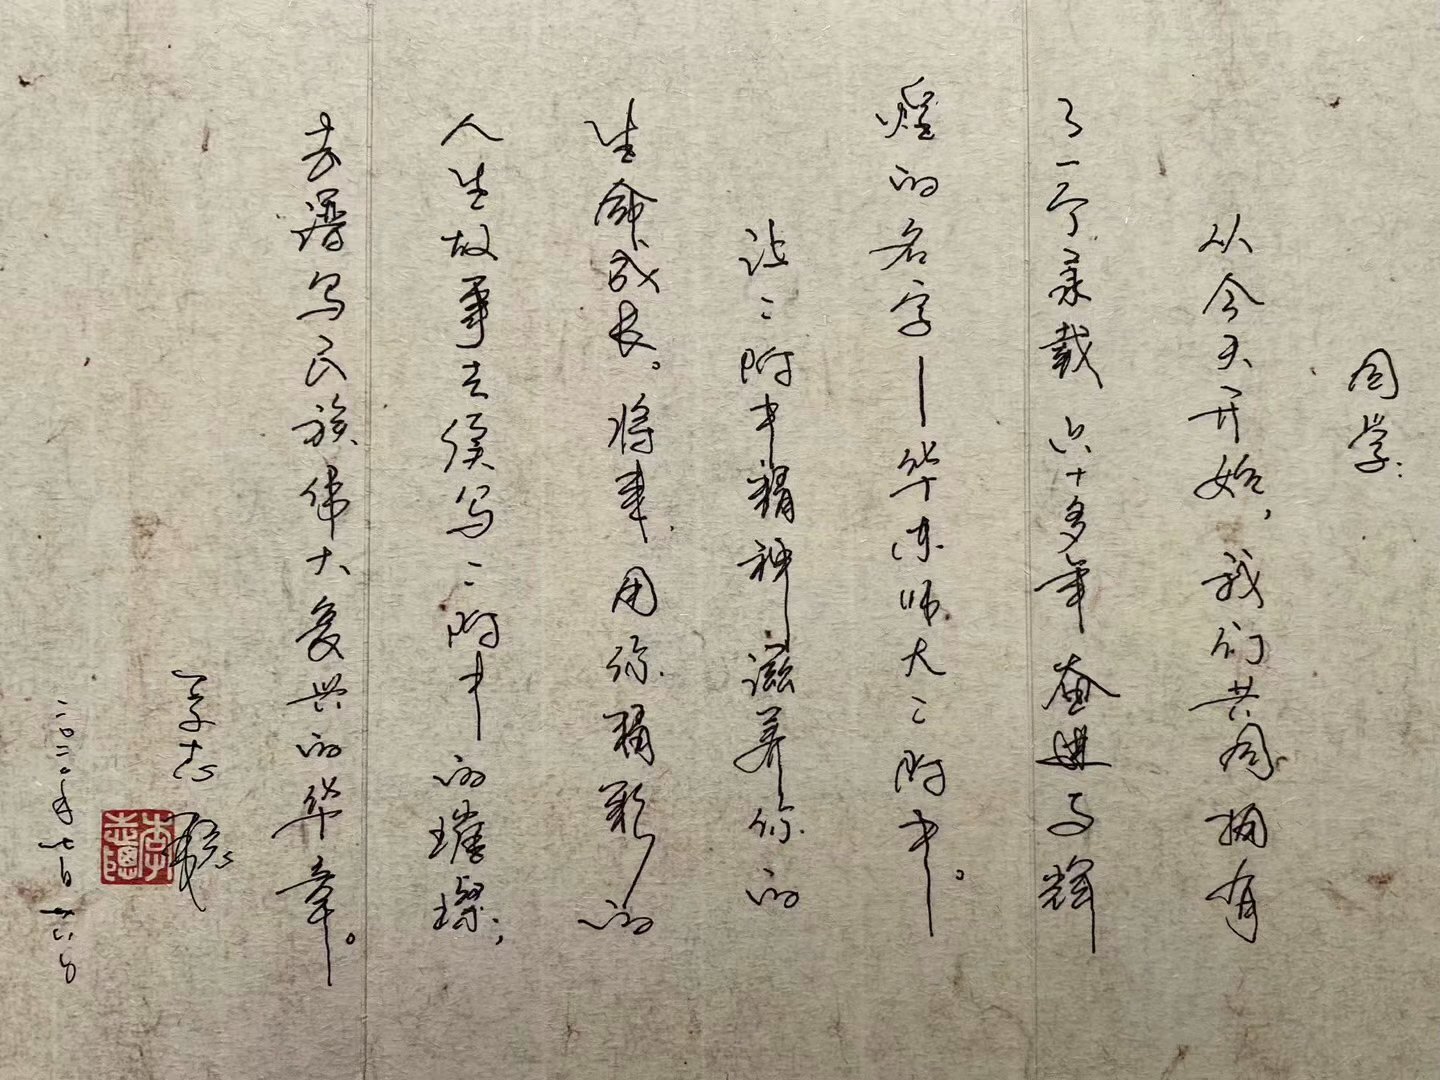 同学：
从今天开始，我们共同拥有
了一个承载六十多年奋进与辉
煌的名字—华东师大二附中。
让二附中精神滋养你的
生命成长。将来，用你精彩的
人生故事去续写二附中的璀璨，
去谱写民族伟大复兴的华章。
李志聪
二〇二〇年七月廿六日
李志聪印